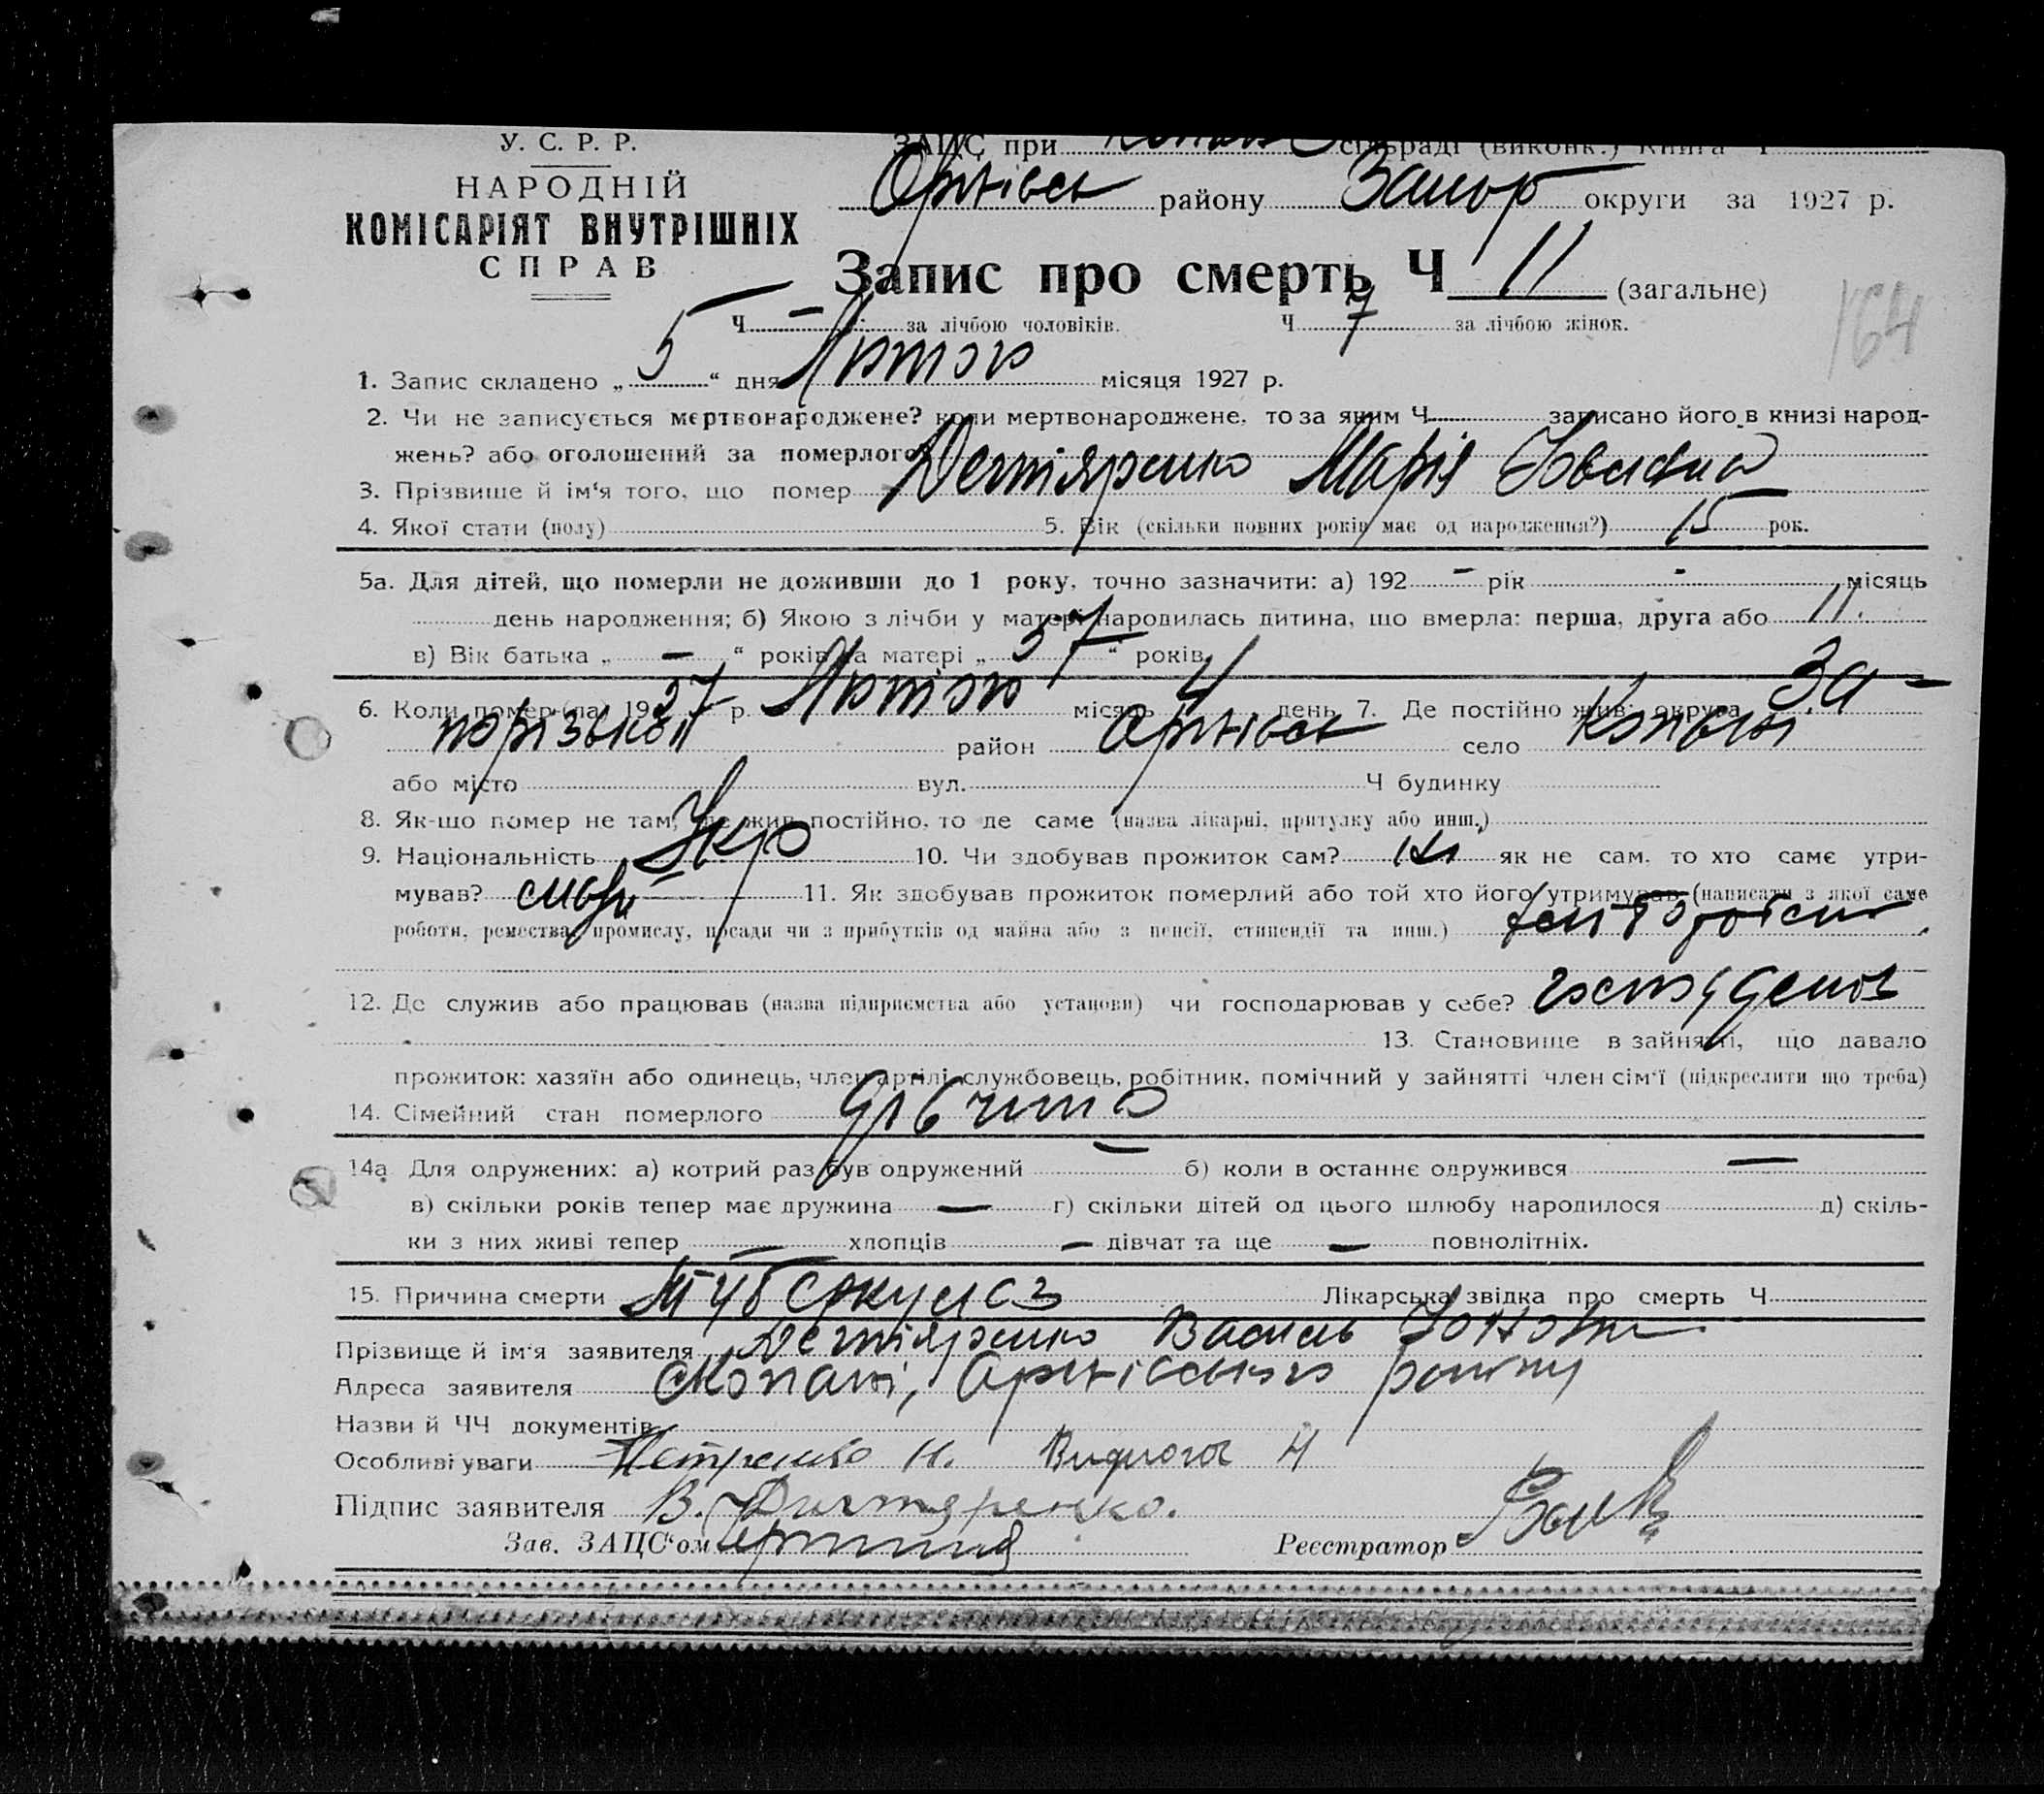 У. С. Р. Р.
НАРОДНІЙ
КОМІСАРІЯТ ВНУТРІШНІХ
СПРАВ
ЗАЦС при сільраді (виконк.) Книга Ч
Оріхівськ району Запор округи за 1927 р.
Запис про смерть Ч 11 (загальне)
Ч — за лічбою чоловіків. Ч 7 за лічбою жінок.
164
1. Запис складено „ 5 “ дня Лютого місяця 1927 р.
2. Чи не записується мертвонароджене? коли мертвонароджене, то за яким Ч записано його в книзі народ-
жень? або оголошений за померлого
3. Прізвище й ім‘я того, що помер Дегтяренко Марія Іовывна
4. Якої стати (полу) 5. Вік (скільки повних років має од народження?) 15 рок.
5а. Для дітей, що померли не доживши до 1 року, точно зазначити: а) 192 - рік - місяць
день народження; б) Якою з лічби у матері народилась дитина, що вмерла: перша, друга або 11.
в) Вік батька „ — “ років та матері „ 57 “ років
6. Коли помер (ла) 1927 р. Лютого місяць 4 день 7. Де постійно жив: округа За-
порізькой район Оріхівськ село Копані
або місто вул. Ч будинку
8. Як-що помер не там, де жив постійно, то де саме (назва лікарні, притулку або инш.)
9. Національність Укр 10. Чи здобував прожиток сам? Ні як не сам, то хто саме утри-
мував? 11. Як здобував прожиток померлий або той хто його утримував (написати з якої саме
роботи, ремества, промислу, посади чи з прибутків од майна або з пенсії, стипендії та инш.)
12. Де служив або працював (назва підприємства або установи) чи господарював у себе?
13. Становище в зайнятті, що давало
прожиток: хазяїн або одинець, член артілі, службовець, робітник, помічний у зайнятті член сім‘ї (підкреслити що треба)
14. Сімейний стан померлого дівчина
14а Для одружених: а) котрий раз був одружений — б) коли в останнє одружився —
в) скільки років тепер має дружина — г) скільки дітей од цього шлюбу народилося д) скіль-
ки з них живі тепер — хлопців — дівчат та ще — повнолітніх.
15. Причина смерти туберкульоз Лікарська звідка про смерть Ч
Прізвище й ім‘я заявителя Дегтяренко Василь
Адреса заявителя с Копані, Оріхівського району
Назви й ЧЧ документів
Особливі уваги Петренко Н.
Підпис заявителя В. Дихтяренко.
Зав. ЗАЦС‘ом Реєстратор